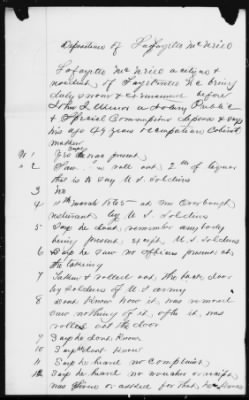 Deposition of Lafayette McNeill
Lafayette McNeill a citizen &
resident of Fayetteville NC being
duly sworn & examined before
John a Notary Public
& Special Commissioner deposes & says
his age 49 years occupation Cabinet
maker
No 1 Yes he was present
" 2 Saw in roll out 2 of liquor
that is to say U.S. Soldiers
3 No
4 11th March 1865 at
by U.S. Soldiers
5 Says he dont remember any body
being present except U.S. Soldiers
6 Says he saw no officers present at
the taking
7 Taken & rolled out the back door
by Soldiers of U.S army
8 dont Know how it was removed
saw nothing of it after it was
rolled out the door
9 Says he dont Know
10 Says dont Know
11 Says he heard no complaint
12 Says he heard no voucher or receipt
was given or asked for that he Knows